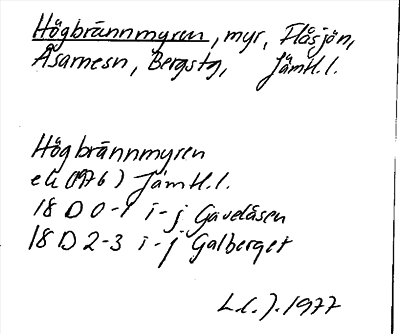 Högbrännmyren, myr, Flåsjön,
Åsarnesn, Bergstg, Jämtl.l.
Högbrännmyren
ek (1976) Jämtl.l.
18 D 0-1 i-j Gaveåsen
18 D 2-3 i-j Galberget
L.C.J. 1977